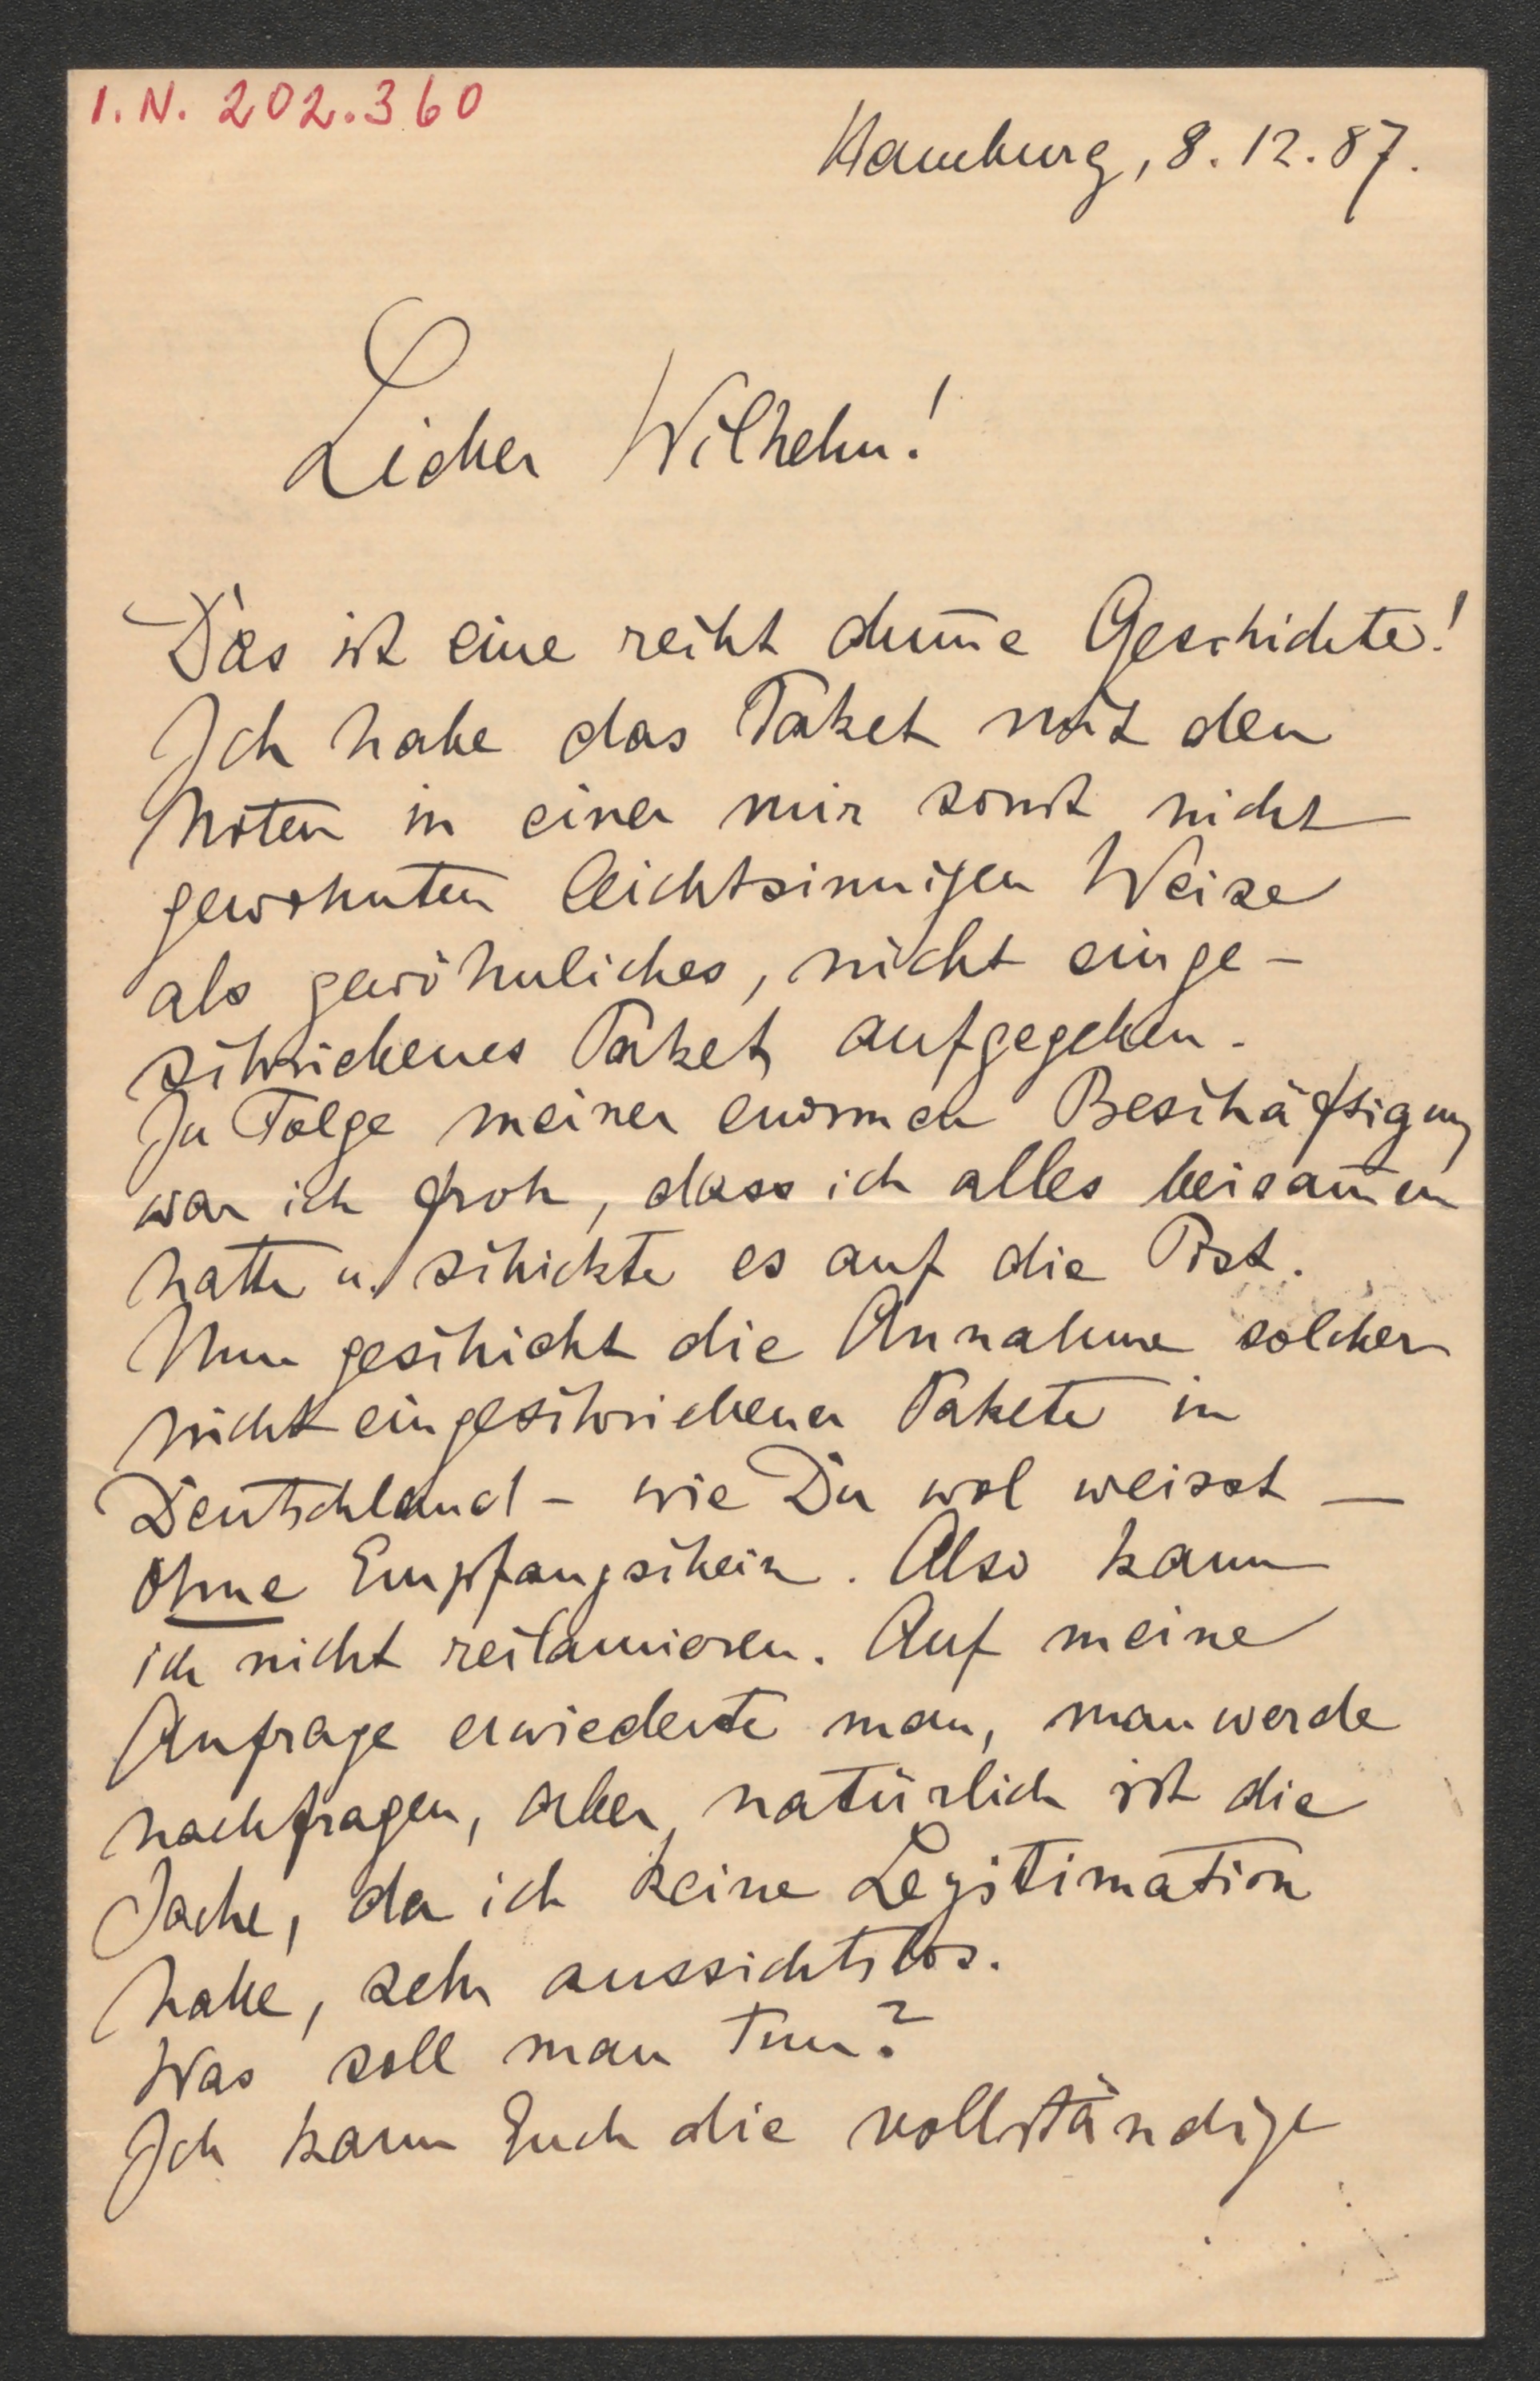 I.N. 202.360
Hamburg, 8.12.87.
Lieber Wilhelm!
Das ist eine recht dum̅e Geschichte!
Ich habe das Paket mit den
Noten in einer mir sonst nicht
gewohnten leichtsinnigen Weise
als gewöhnliches, nicht einge-
schriebenes Paket aufgegeben.
In Folge meiner enormen Beschäftigung
war ich froh, dass ich alles beisam̅en
hatte u. schickte es auf die Post.
Nun geschieht die Annahme solcher
nicht eingeschriebener Pakete in
Deutschland – wie Du wol weisst –
ohne Empfangschein. Also kann
ich nicht reclamieren. Auf meine
Anfrage erwiederte man, man werde
nachfragen, aber natürlich ist die
Sache, da ich keine Legitimation
habe, sehr aussichtslos.
Was soll man tun?
Ich kann Euch die vollständige